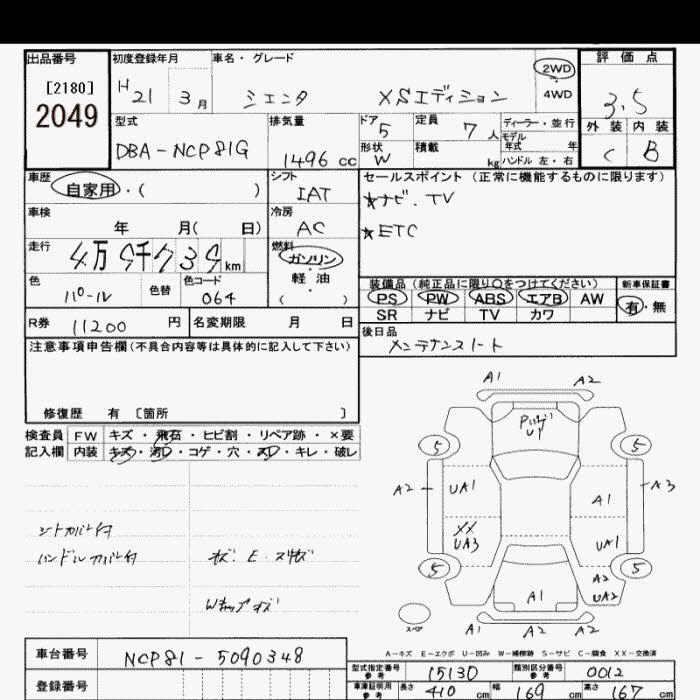 出品番号 初度登録年月 車名・グレード 評価点
[2180]
2049
H 21 3月 シエンタ XSエディション 2WD 4WD 3.5
型式 排気量 ドア 定員 ディーラー・並行 外装 内装
DBA-NCP81G 1496 cc 5 7人 モデル年式 年 C B
形状 W 積載 kg ハンドル 左・右
車歴 自家用・( ) シフト IAT セールスポイント(正常に機能するものに限ります)
★ナビ.TV
車検 年 月( 日) 冷房 AC
★ETC
走行 4万9千739km 燃料 ガソリン 軽・油 ( )
色 パール 色替 色コード 064
装備品(純正品に限り○をつけてください) 新車保証書
PS PW ABS エアB AW 有・無
SR ナビ TV カワ
R券 11200 円 名変期限 月 日
後日品 メンテナンスノート
注意事項申告欄(不具合内容等は具体的に記入して下さい)
修復歴 有 〔箇所 〕
検査員 FW キズ・飛石・ヒビ割・リペア跡・×要
記入欄 内装 キズ・汚レ・コゲ・穴・スレ・キレ・破レ
シートカバー付
ハンドルカバー付
E
Wキャップキズ
A1 A2
U1
5 5
A2 UA1 A1 A3
XX
UA3 UA1
5 5
A2
A1 UA2
スペア A1 A2 A2
A-キズ E-エクボ U-凹み W-補修跡 S-サビ C-腐食 XX-交換済
車台番号 NCP81-5090348
登録番号
型式指定番号 参考 15130 類別区分番号 参考 0012
車庫証明用 参考 長さ 410 cm 幅 169 cm 高さ 167 cm